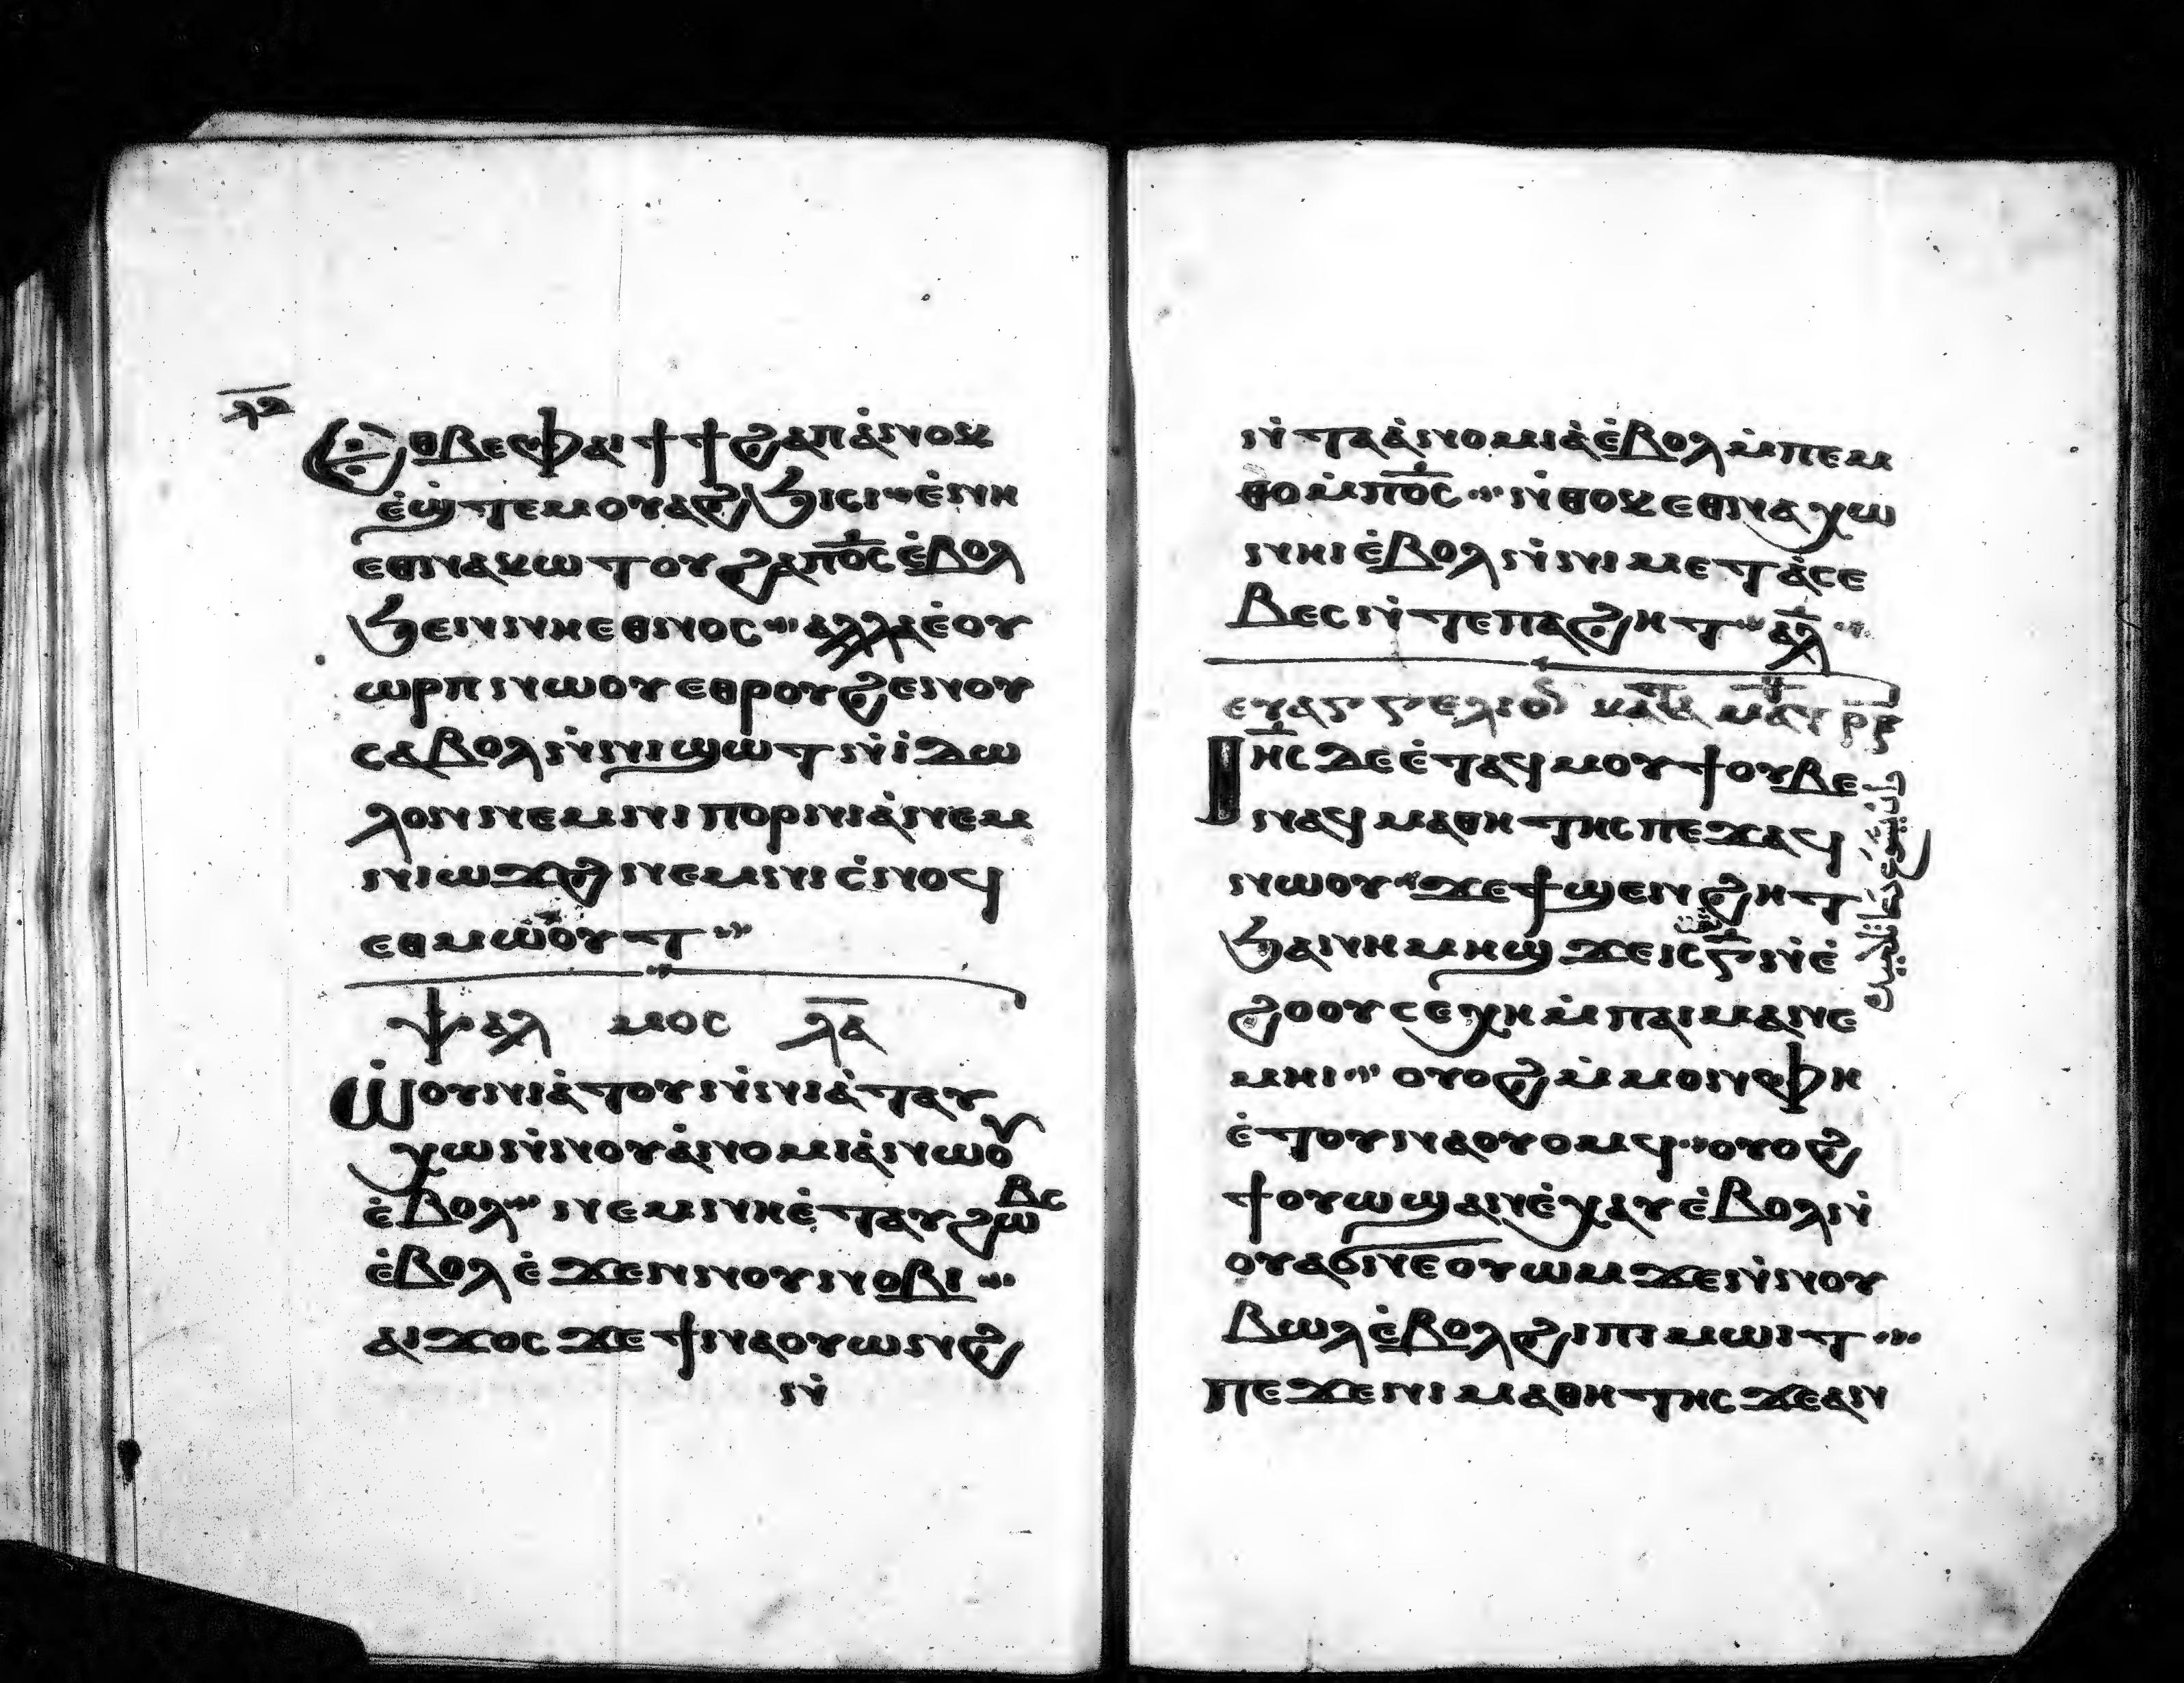 ⲗⲋ
Ⲉⲑⲃⲉⲫⲁⲓ ϯϯϩⲁⲡ ⲁ̀ⲛⲟⲕ
ⲉ̀ϣⲧⲉⲙⲟⲩⲁϩϧⲓⲥⲓ ⲉ̀ⲛⲏ
ⲉⲑⲛⲁⲕⲱⲧⲟⲩ ϩⲁⲡⲟ̅ⲥ̅ ⲉ̀ⲃⲟⲗ
ϧⲉⲛ ⲛⲏⲉⲑⲛⲟⲥ ⲁⲗⲗⲁ ⲉ̀ⲟⲩ
ⲱⲣⲡ ⲛⲱⲟⲩ ⲉⲑⲣⲟⲩϩⲉⲛⲟⲩ
ⲥⲁⲃⲟⲗ ⲛ̀ⲛⲓϣⲱⲧ ⲛ̀ⲓ̀ⲇⲱ
ⲗⲟⲛ ⲛⲉⲙ ⲛⲓⲡⲟⲣⲛⲓⲁ̀ ⲛⲉⲙ
ⲛⲓⲱϫϩ ⲛⲉⲙ ⲛⲓⲥ̀ⲛⲟϥ
ⲉⲑⲙⲱⲟⲩⲧ
ⲯⲁⲗⲙⲟⲥ ⲗ̅ⲁ̅
Ⲱⲟⲩⲛⲓⲁ̀ⲧⲟⲩ ⲛ̀ⲛⲓⲁ̀ⲧⲁⲩ
ⲭⲱ ⲛ̀ⲛⲟⲩⲁ̀ⲛⲟⲙⲓⲁ̀ ⲛⲱⲟⲩ
ⲉ̀ⲃⲟⲗ ⲛⲉⲙ ⲛⲏⲉ̀ⲧⲁⲩϩⲱⲃⲥ
ⲉ̀ⲃⲟⲗ ⲉ̀ϫⲉⲛ ⲛⲟⲩⲛⲟⲃⲓ
ⲁⲓϫⲟⲥ ϫⲉ ϯⲛⲁⲟⲩⲱⲛϩ
ⲛ̀
ⲛ̀ⲧⲁⲁ̀ⲛⲟⲙⲓⲁ̀ ⲉ̀ⲃⲟⲗ ⲙ̀ⲡⲉⲙ
ⲑⲟ ⲙ̀ⲡⲟ̅ⲥ̅ ⲛ̀ⲑⲟⲕ ⲉⲑⲛⲁⲭⲱ
ⲛⲏⲓ ⲉ̀ⲃⲟⲗ ⲛ̀ⲛⲓⲙⲉⲧⲁ̀ⲥⲉ
ⲃⲉⲥ ⲛ̀ⲧⲉ ⲡⲁϩⲏⲧ ⲁ̅ⲗ̅
ⲉⲩⲁⲅⲅⲉⲗⲓⲟ ⲕⲁⲧⲁ ⲙⲁⲧ
Ⲓⲏ̅ⲥ̅ ⲇⲉ ⲉ̀ⲧⲁϥⲙⲟⲩϯ ⲟⲩⲃⲉ
ⲛⲁϥⲙⲁⲑⲏⲧⲏⲥ ⲡⲉϫⲁϥ
ⲛⲱⲟⲩ ϫⲉ ϯϣⲉⲛϩⲏⲧ
ϧⲁ ⲛⲏⲙⲏϣ ϫⲉ ⲓⲥ ⲅ̅ ⲛ̀ⲉ̀
ϩⲟⲟⲩ ⲥⲉⲭⲏ ⲙ̀ⲡⲁⲓⲙⲁ ⲛⲉ
ⲙⲏⲓ ⲟⲩⲟϩ ⲙ̀ⲙⲟⲛ ⲫⲏ
ⲉ̀ⲧⲟⲩⲛⲁⲟⲩⲟⲙϥ ⲟⲩⲟϩ
ϯⲟⲩⲱϣ ⲁⲛ ⲉ̀ⲭⲁⲩ ⲉ̀ⲃⲟⲗ ⲛ̀
ⲟⲩⲁϭⲛⲉ ⲟⲩⲱⲙ ϫⲉ ⲛ̀ⲛⲟⲩ
ⲃⲱⲗ ⲉ̀ⲃⲟⲗ ϩⲓ ⲡⲓⲙⲱⲓⲧ
ⲡⲉϫⲉ ⲛⲓⲙⲁⲑⲏⲧⲏⲥ ϫⲉ ⲁⲛ